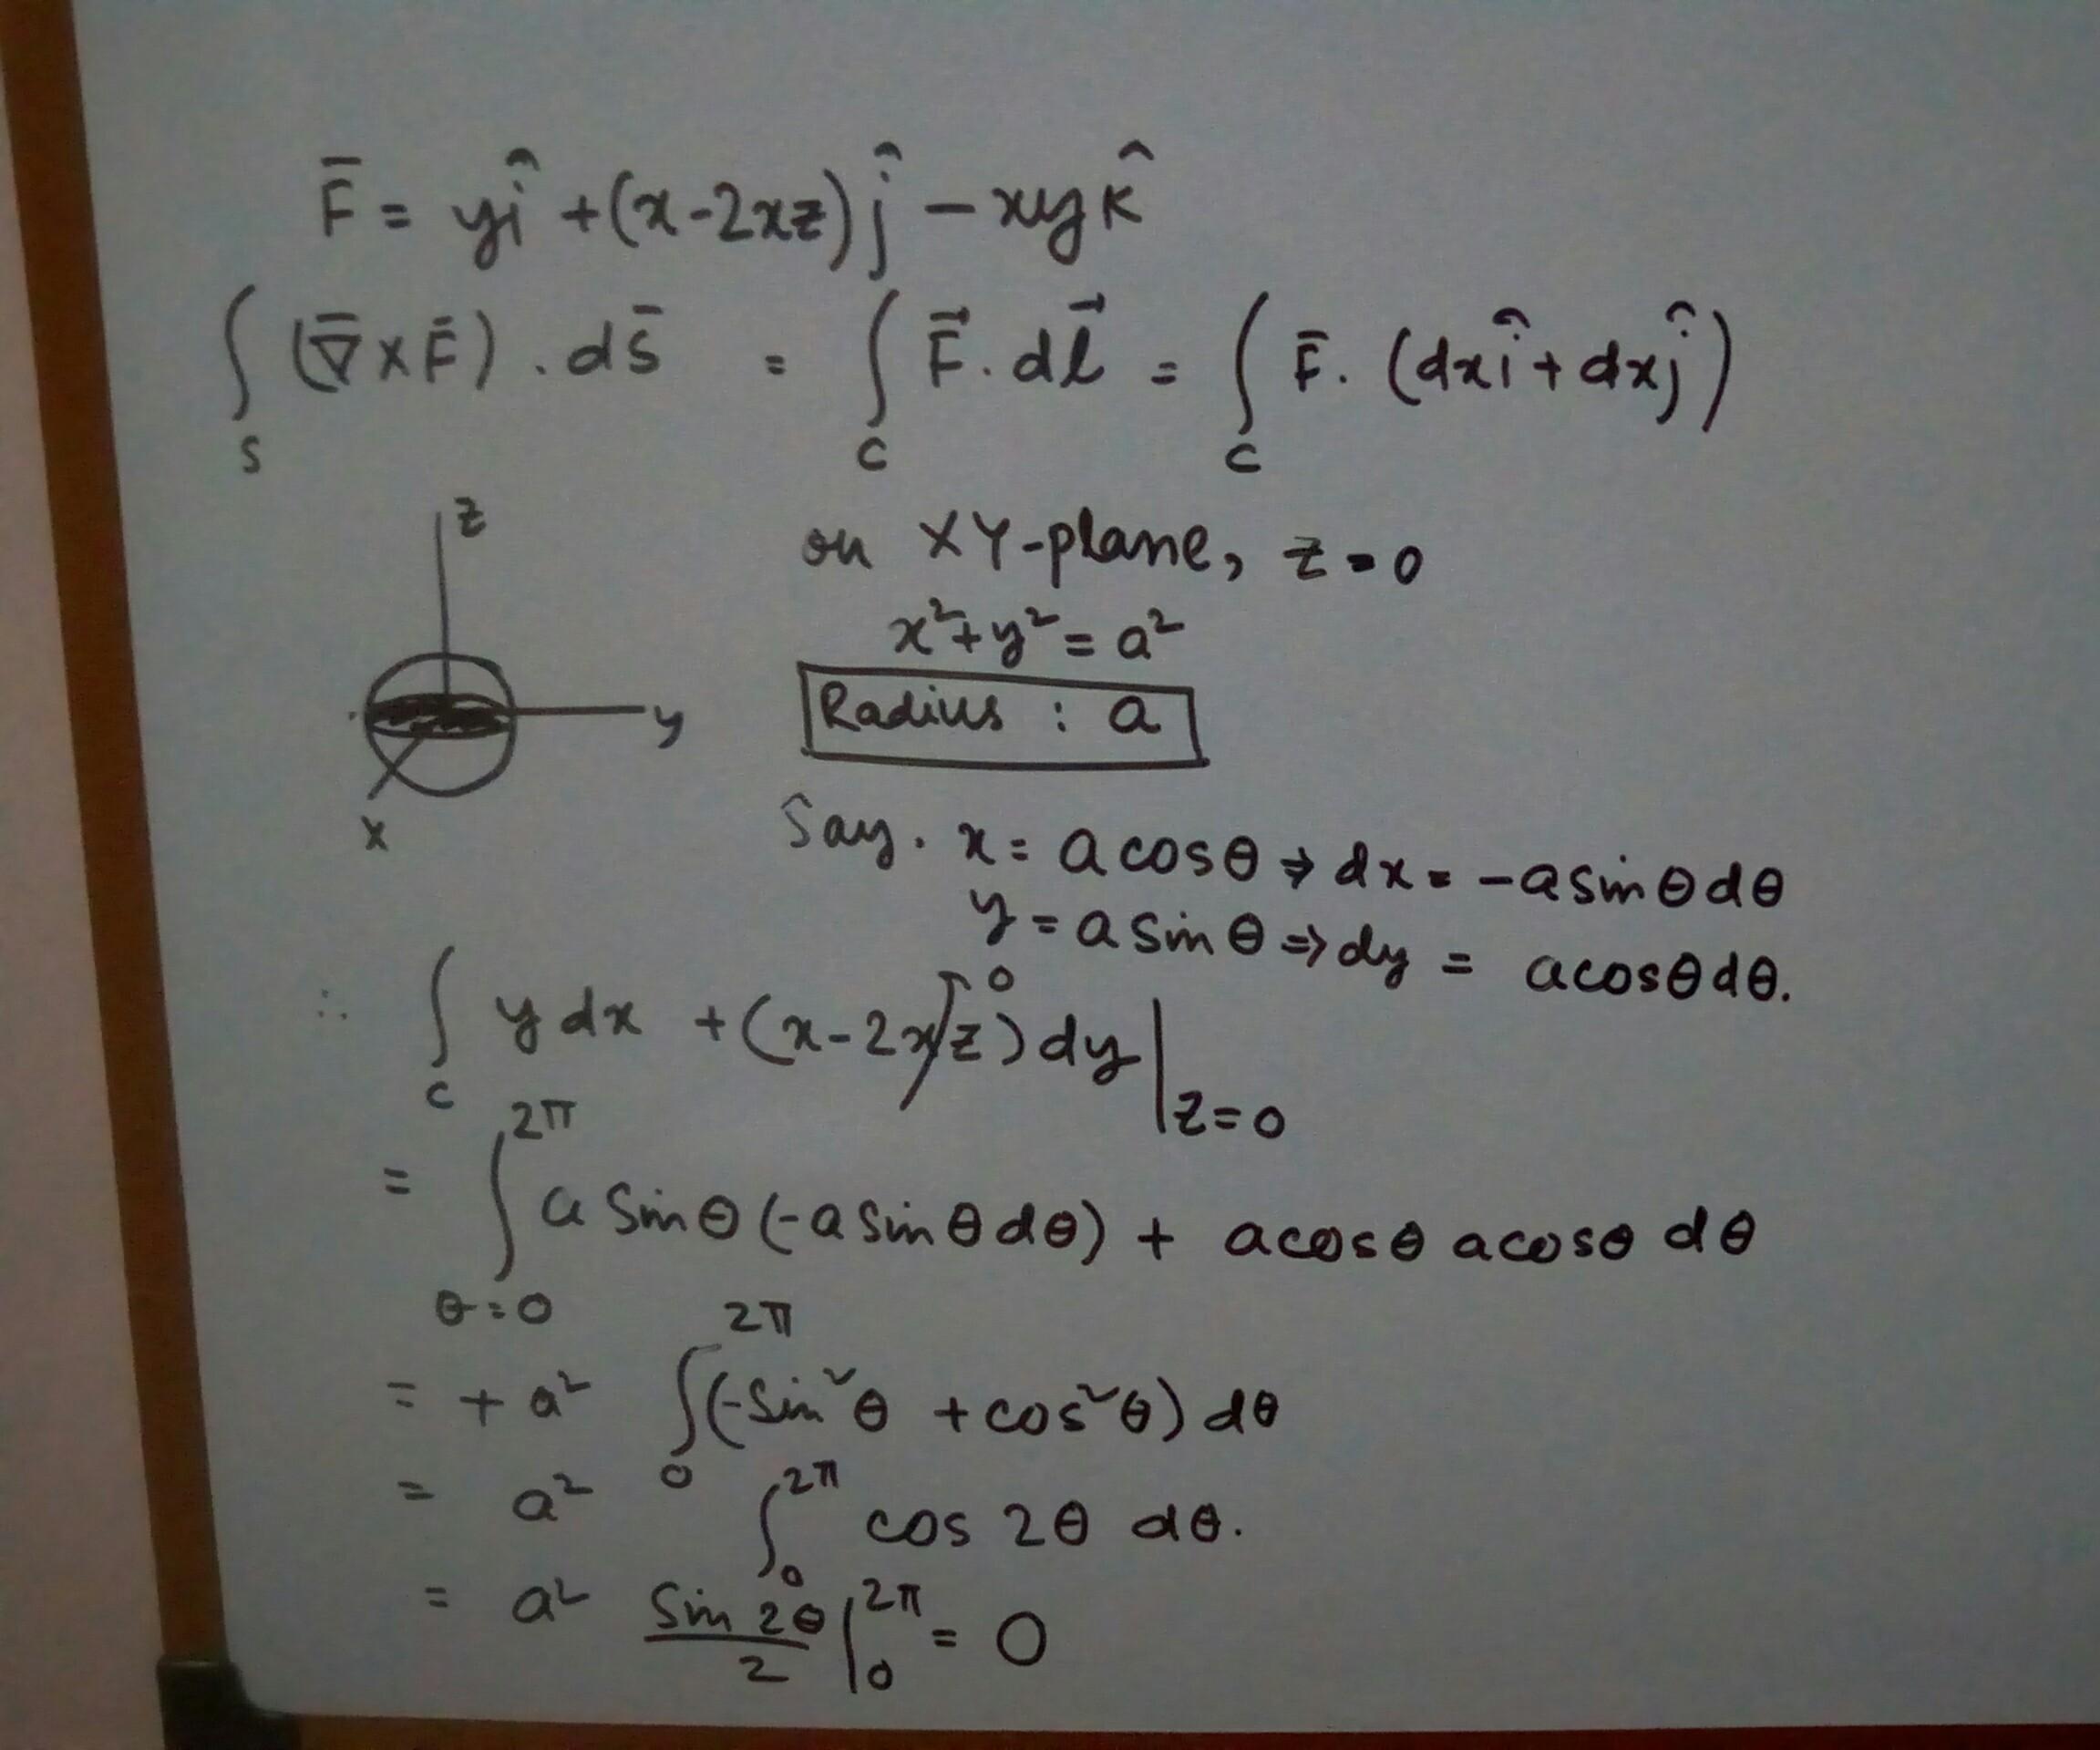 F̄ = yî + (x-2xz)ĵ - xyk̂
∫_S (∇̄ × F̄) . ds̄ = ∫_C F⃗ . dl⃗ = ∫_C F̄ . (dxî + dxĵ)
z
y
x
on XY-plane, z = 0
x² + y² = a²
Radius : a
Say. x = a cosθ ⇒ dx = -a sinθ dθ
y = a sinθ ⇒ dy = a cosθ dθ.
∴ ∫_C y dx + (x - 2xz)⁰ dy |_{z=0}
= ∫_{θ=0}^{2π} a Sinθ (-a sinθ dθ) + a cosθ a cosθ dθ
= + a² ∫_0^{2π} (-Sin²θ + cos²θ) dθ
= a² ∫_0^{2π} cos 2θ dθ.
= a² Sin 2θ / 2 |_0^{2π} = 0